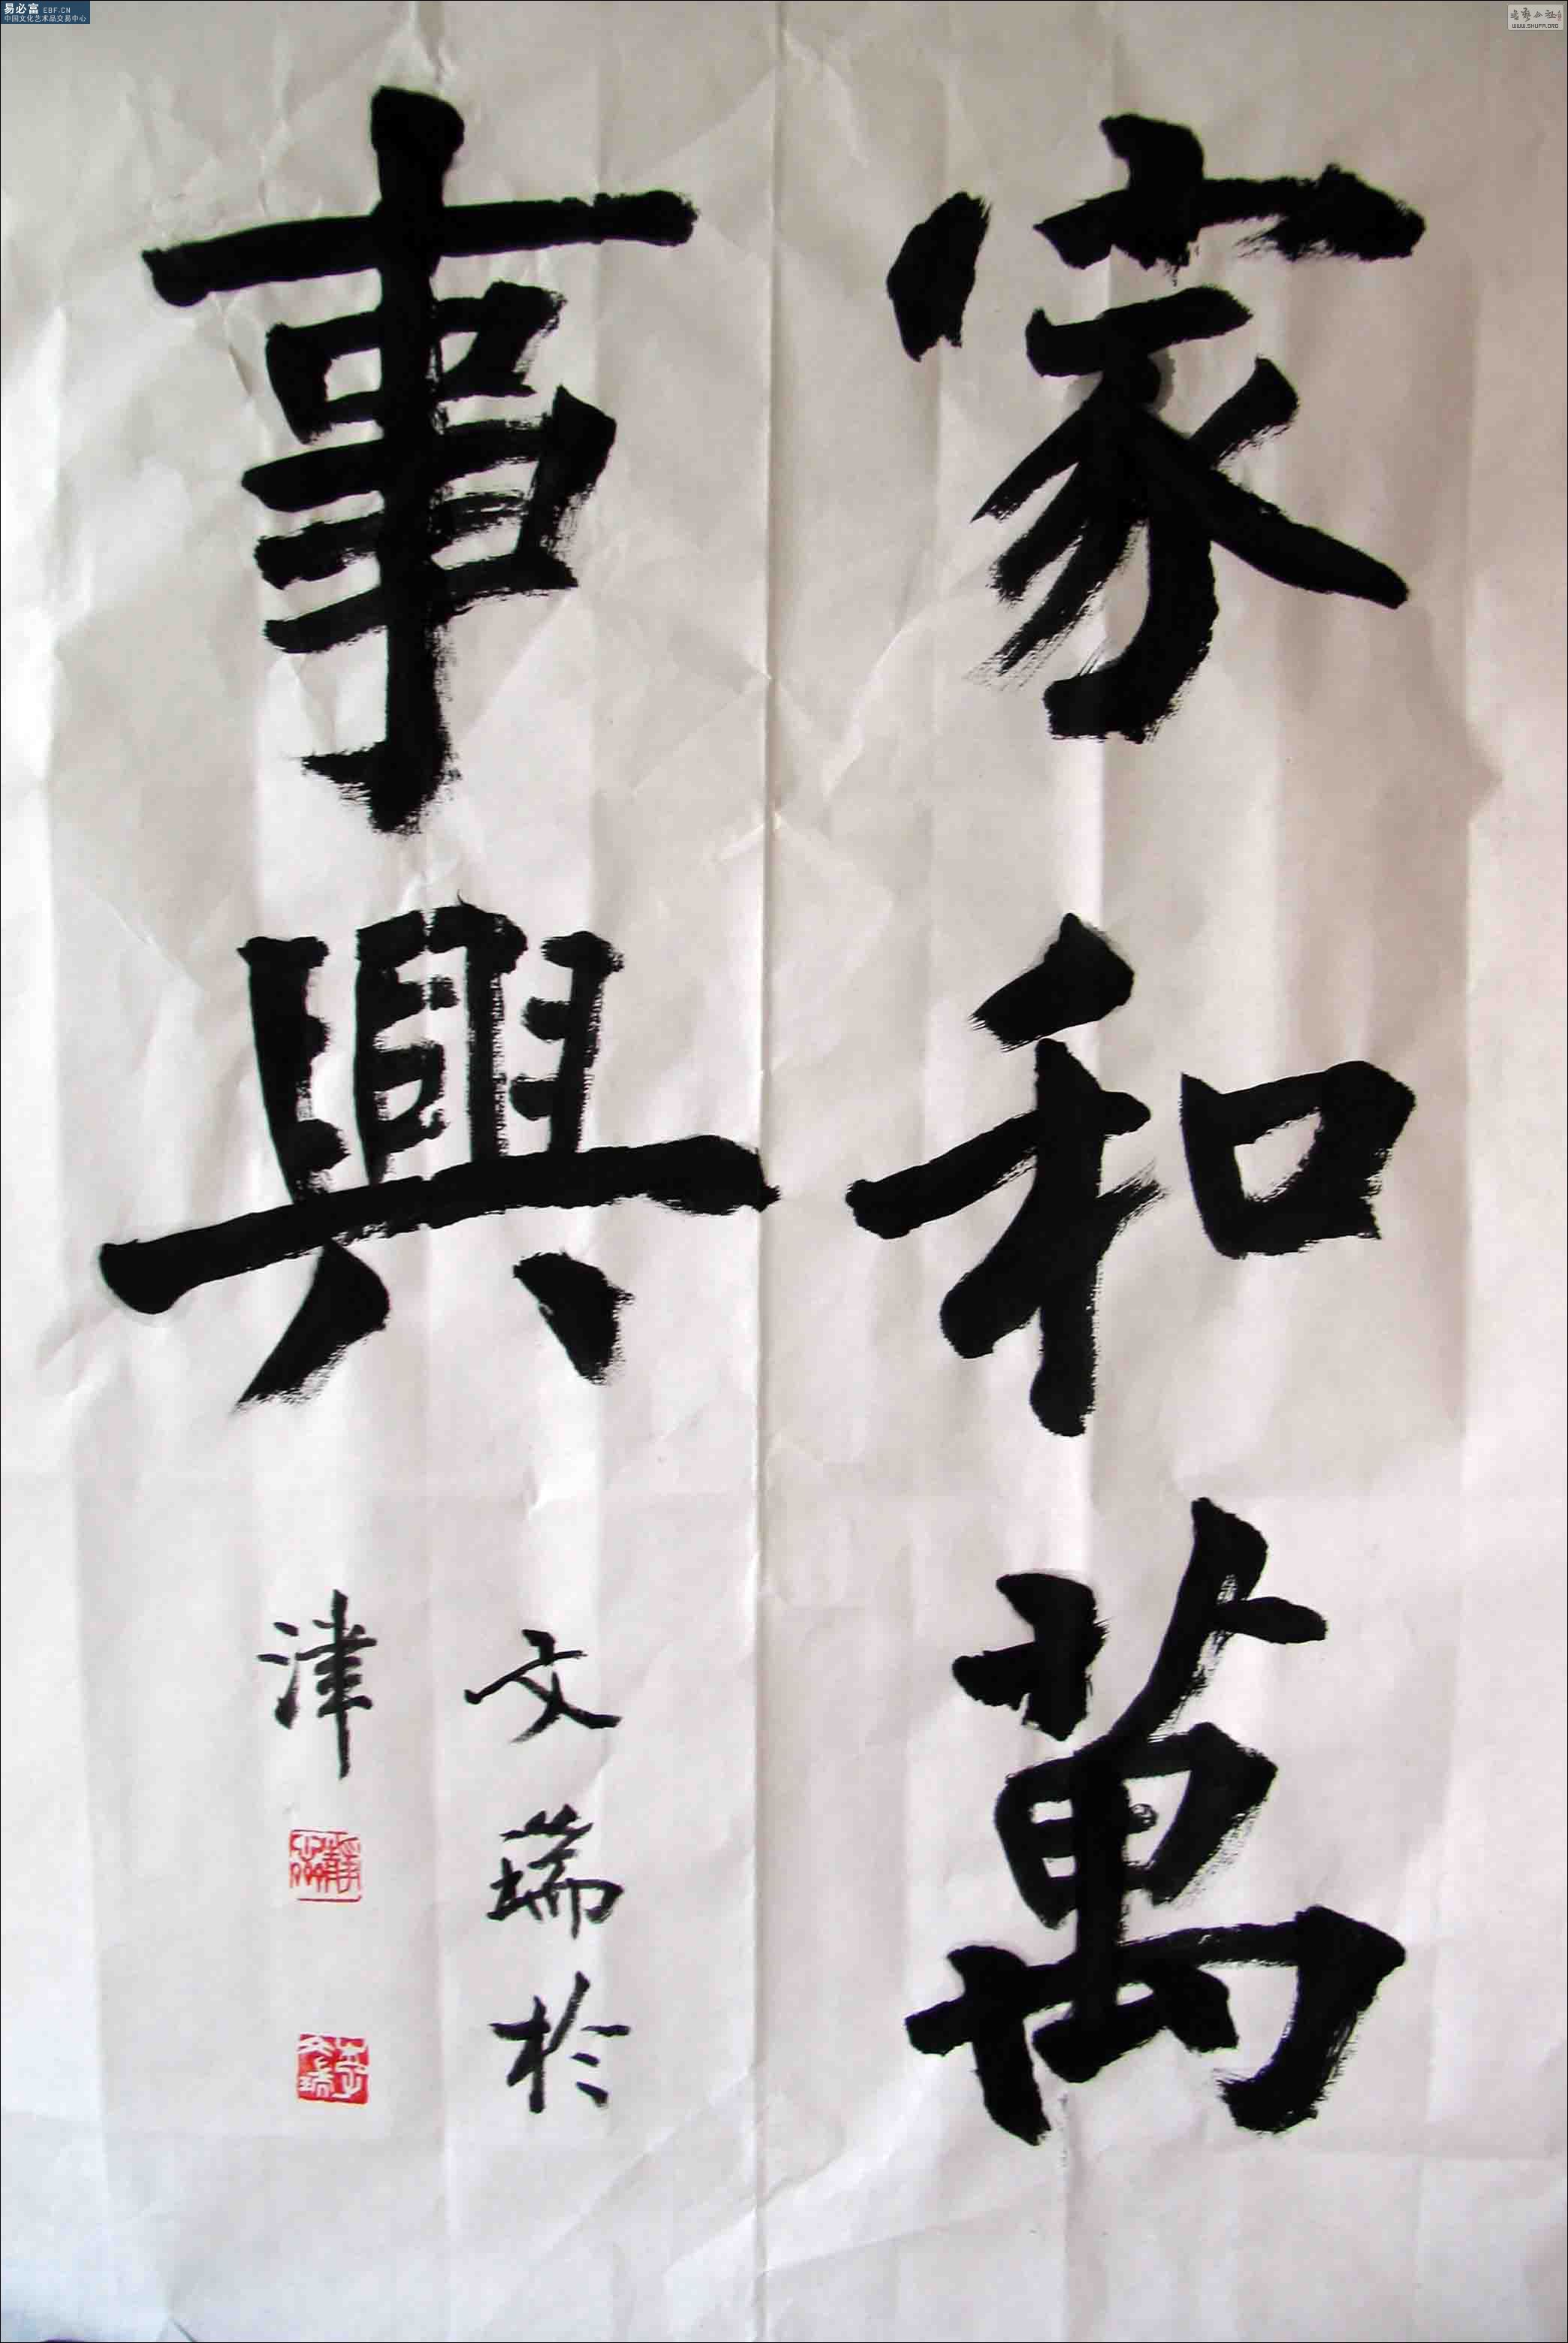 家和萬
事興
文瑞於
津
易必富 EBF.CN
中国文化艺术品交易中心
WWW.SHUFA.ORG